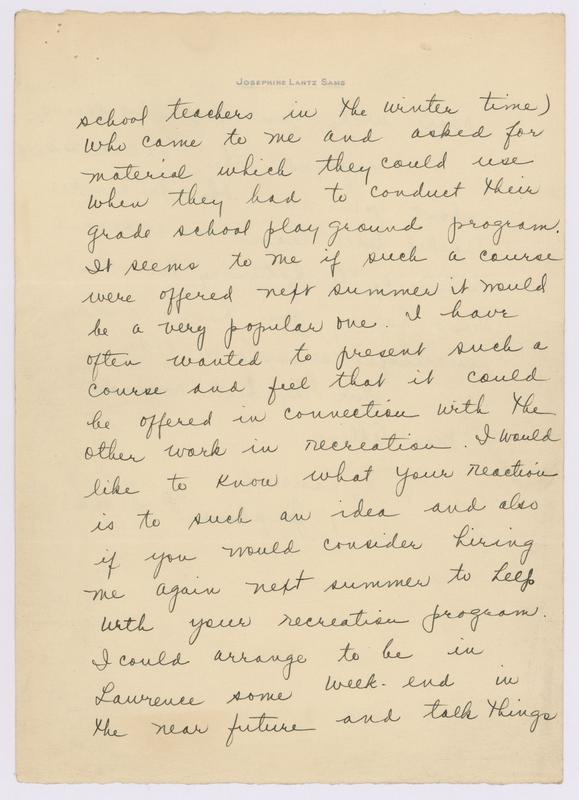 JOSEPHINE LANTZ SAMS
school teachers in the winter time)
who came to me and asked for
material which they could use
when they had to conduct their
grade school play ground program.
It seems to me if such a course
were offered next summer it would
be a very popular one. I have
often wanted to present such a
course and feel that it could
be offered in connection with the
other work in recreation. I would
like to know what your reaction
is to such an idea and also
if you would consider hiring
me again next summer to help
with your recreation program.
I could arrange to be in
Lawrence some week-end in
the near future and talk things